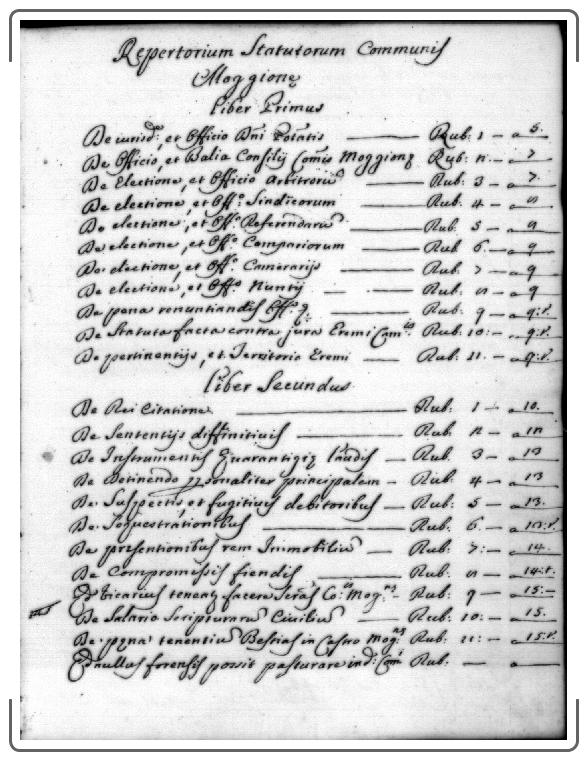 Repertorium Statutorum Communis
Moggionę
Liber Primus
De iurisd: et Officio Dni Potatis Rub: 1 - a 5.
De Officio, et Balia Consilij Comis Moggionę Rub: 2 - a 7
De Electione, et Officio Arbitroru Rub: 3 - a 7.
De electione, et Off: Sindicorum Rub: 4 - a 8
De electione, et Off: Referendaru Rub: 5 - a 8
De electione, et Offo. Campariorum Rub: 6. - a 9
De electione, et Offo. Camerarijs Rub: 7 - a 9
De electione, et Offo Nuntij Rub: 8 - a 9
De pena renuntiandis Offo Rub: 9 - a 9:t.
De Statuta facta contra jura Eremi Camis Rub: 10: - a 9:t.
De pertinentijs, et Territorio Eremi Rub: 11. - a 9:t.
Liber Secundus
De Rei Citatione Rub: 1 - a 10.
De Sententijs diffinitivis Rub: 2 - a 12
De Instrumentis Guarantigię laudis Rub: 3 - a 13
De Detinendo personaliter principalem Rub: 4 - a 13
De Suspectis, et fugitivis debitoribus Rub: 5 - a 13.
De Sequestrationibus Rub: 6. - a 13:t.
De presentionibus rem Immobiliu Rub: 7: - a 14.
De Compromissis fiendis Rub: 8 - a 14:t.
Qd Vicarius teneat facere Co: Mog: Rub: 9 - a 15:-
De Salario Scripturaru Civiliu Rub: 10: - a 15.
De pęna tenentiu Bestias in Castro Mog: Rub: 11: - a 15:t.
Qd nullus forensis possit pasturare in d: Com Rub: - a